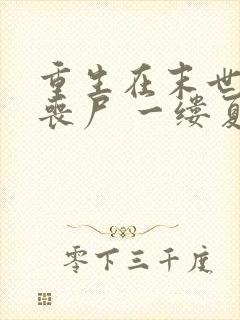 重生在末世
丧尸一缕
零下三千度